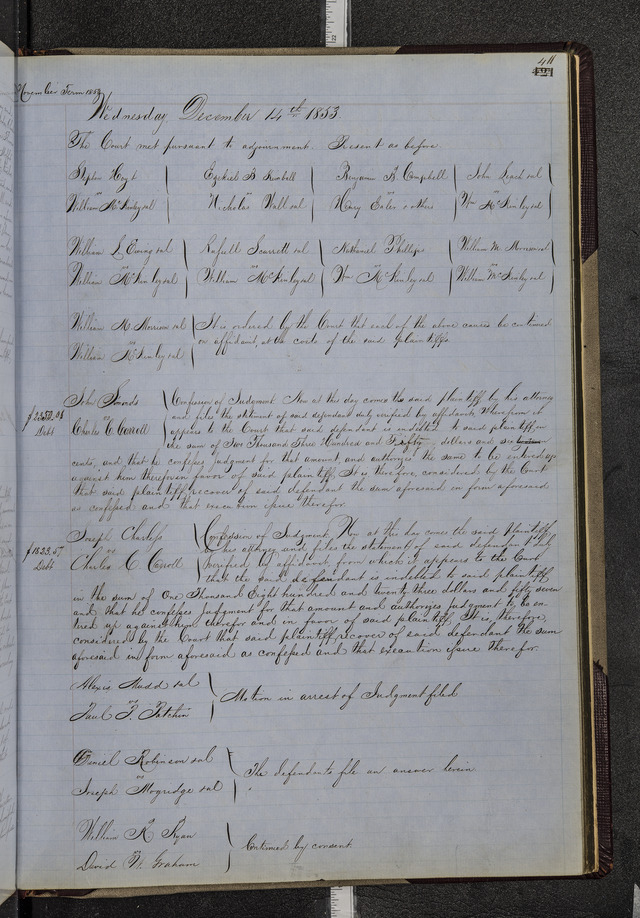 411
November Term 1853
Wednesday December 14th 1853.
The Court met pursuant to adjournment. Present as before.
Stephen Hoyt
vs
William McKinley et al
Ezekiel B. Kimball
vs
Nicholas Wall et al
Benjamin B. Campbell
vs
Henry Bates & others
John Leach et al
vs
Wm McKinley et al
William L. Ewing et al
vs
William McKinley et al
Rafaell Scarrett et al
vs
William McKinley et al
Nathaniel Phillips
vs
Wm McKinley et al
William M. Morrison et al
vs
William McKinley et al
William M. Morrison et al
vs
William McKinley et al
It is ordered by the Court that each of the above causes be continued
on affidavit, at the costs of the said plaintiffs.
John Simonds
vs
Charles C. Carroll
Debt
Confession of Judgment. Now at this day comes the said plaintiff by his attorney
and files the statement of said defendant duly verified by affidavit, wherefrom it
appears to the Court that said defendant is indebted to said plaintiff, in
the sum of Two Thousand Three Hundred and Fifty dollars and six
cents, and that he confesses judgment for that amount, and authorizes the same to be entered up
against him therefor in favor of said plaintiff, It is therefore, considered by the Court
that said plaintiff recover of said defendant the sum aforesaid in form aforesaid
as confessed and that execution issue therefor.
Joseph Charless
vs
Charles C. Carroll
$1823.57
Debt
Confession of Judgment, Now at this day comes the said Plaintiff
by his attorney, and files the statement of said defendant duly
verified by affidavit, from which it appears to the Court
that the said defendant is indebted to said plaintiff
in the sum of One Thousand Eight hundred and twenty three dollars and fifty seven
and that he confesses judgment for that amount and authorizes judgment to be en-
tered up against him therefor and in favor of said plaintiff, It is, therefore,
considered by the Court that said plaintiff recover of said defendant the sum
aforesaid in form aforesaid as confessed and that execution issue therefor.
Alexis Mudd et al
vs
Paul F. Patchin
Motion in arrest of Judgment filed
Daniel Robinson et al
vs
Joseph Mogridge et al
The defendants file an answer herein.
William K. Ryan
vs
David W. Graham
Continued by consent.